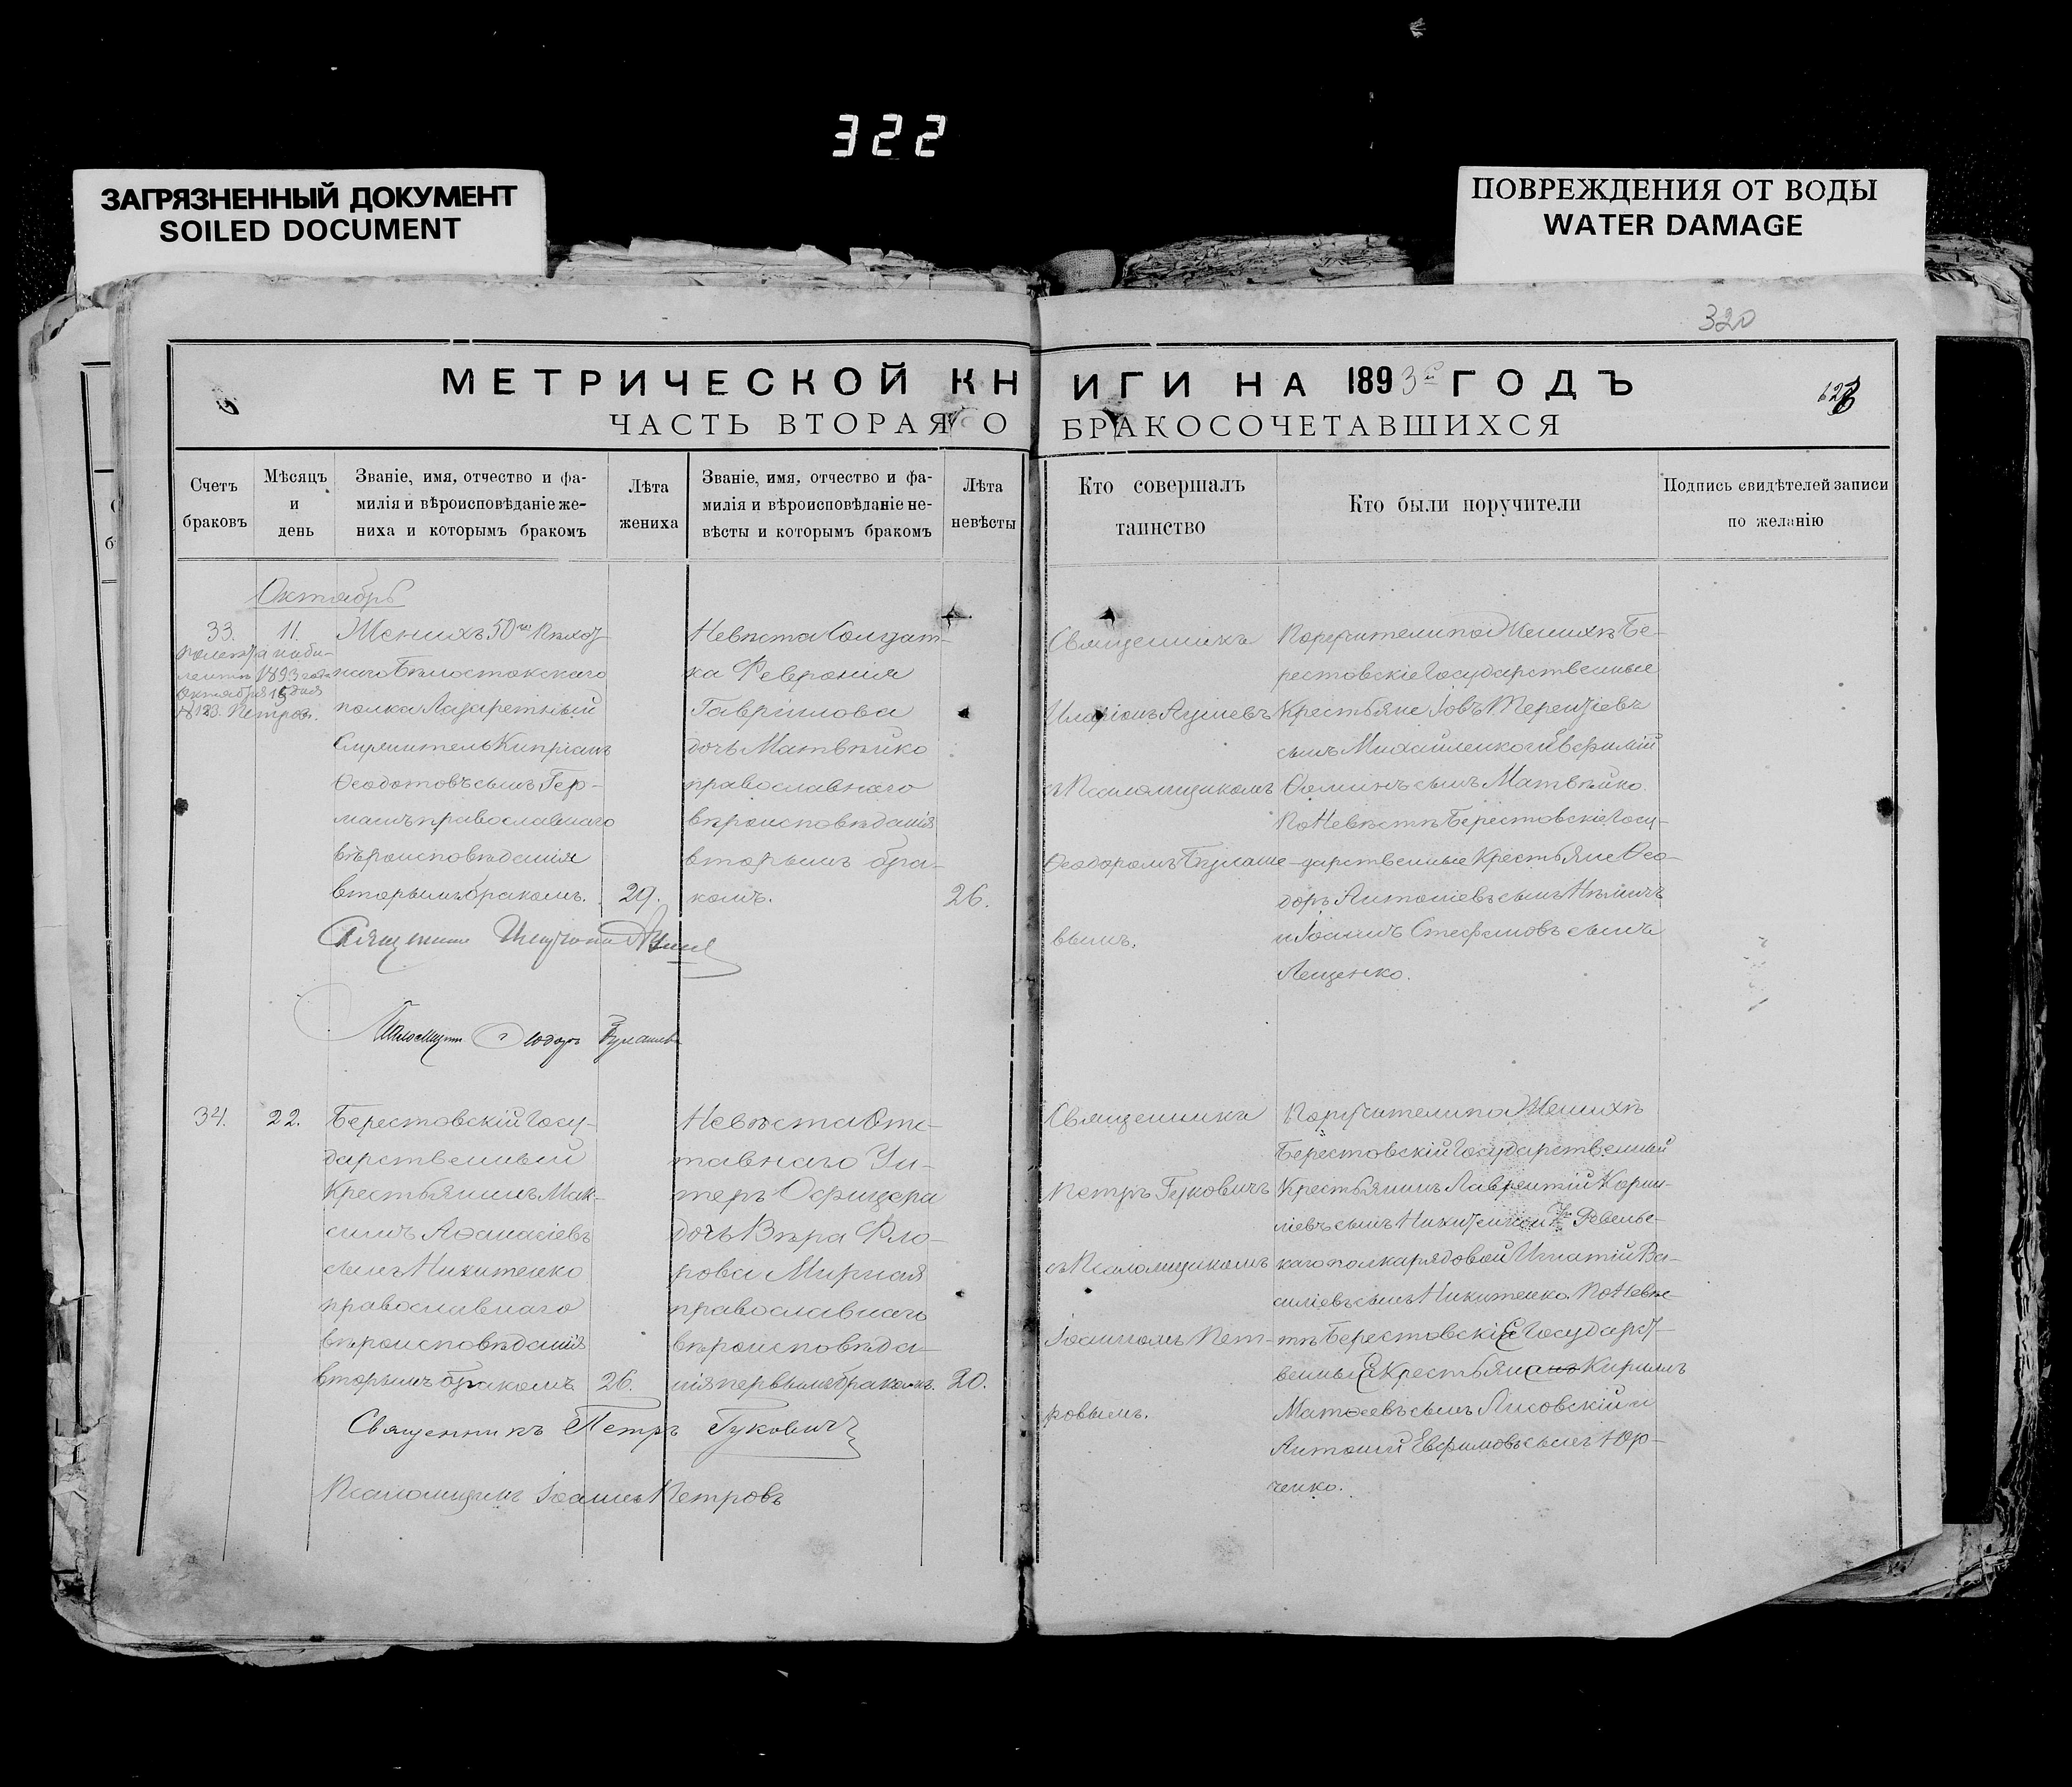 322
ЗАГРЯЗНЕННЫЙ ДОКУМЕНТ
SOILED DOCUMENT
ПОВРЕЖДЕНИЯ ОТ ВОДЫ
WATER DAMAGE
320
МЕТРИЧЕСКОЙ КНИГИ НА 1893 ГОДЪ
ЧАСТЬ ВТОРАЯ О БРАКОСОЧЕТАВШИХСЯ
Счетъ
браковъ
Мѣсяцъ
и
день
Званіе, имя, отчество и фа-
милія и вѣроисповѣданіе же-
ниха и которымъ бракомъ
Лѣта
жениха
Званіе, имя, отчество и фа-
милія и вѣроисповѣданіе не-
вѣсты и которымъ бракомъ
Лѣта
невѣсты
Кто совершалъ
таинство
Кто были поручители
Подпись свидѣтелей записи
по желанію
Октябрь
33.
11.
1893 года
Октября 15 дня
№ 123. Петров.
Женихъ 50го Пѣхот
наго Бѣлостокскаго
полка Лазаретный
Служитель Кипріанъ
Ѳеодотовъ сынъ Гер-
манъ православнаго
вѣроисповѣданія
вторымъ бракомъ.
29.
Невѣста Солдат-
ка Феврония
Гавріилова
дочь Матвѣйко
православнаго
вѣроисповѣданія
вторымъ бра-
комъ.
26.
Священникъ
Иларіонъ
съ Псаломщикомъ
Ѳеодоромъ Булаше-
вымъ.
Поручители по Женихѣ Бе-
рестовскіе Государственные
Крестьяне Іовъ Терентіевъ
сынъ Михайленко и Евфимій
Ѳоминъ сынъ Матвѣйко.
По Невѣстѣ Берестовскіе Госу-
дарственные Крестьяне Ѳео-
доръ Антоніевъ сынъ
и Іоаннъ Стефановъ сынъ
Лещенко.
Священникъ
Псаломщикъ Ѳеодоръ Булашевъ
34.
22.
Берестовскій Госу-
дарственный
Крестьянинъ Мак-
симъ Аѳанасіевъ
сынъ Никитенко
православнаго
вѣроисповѣданія
вторымъ бракомъ
26.
Невѣста Отс-
тавнаго Ун-
теръ Офицера
дочь Вѣра Фло-
рова Мирная
православнаго
вѣроисповѣда-
нія первымъ бракомъ.
20.
Священникъ
Петръ Гуковичъ
съ Псаломщикомъ
Іоанномъ Пет-
ровымъ.
Поручители по Женихѣ
Берестовскій Государственный
Крестьянинъ Лаврентій Корни-
ліевъ сынъ Никитенко и
каго полка рядовой Игнатій Ва-
силіевъ сынъ Никитенко. По Невѣс-
тѣ Берестовскіе Государст-
венные Крестьяне Кириллъ
Матѳеевъ сынъ Лисовскій и
Антоній Евфимовъ сынъ Юр-
ченко.
Священникъ Петръ Гуковичъ
Псаломщикъ Іоаннъ Петровъ